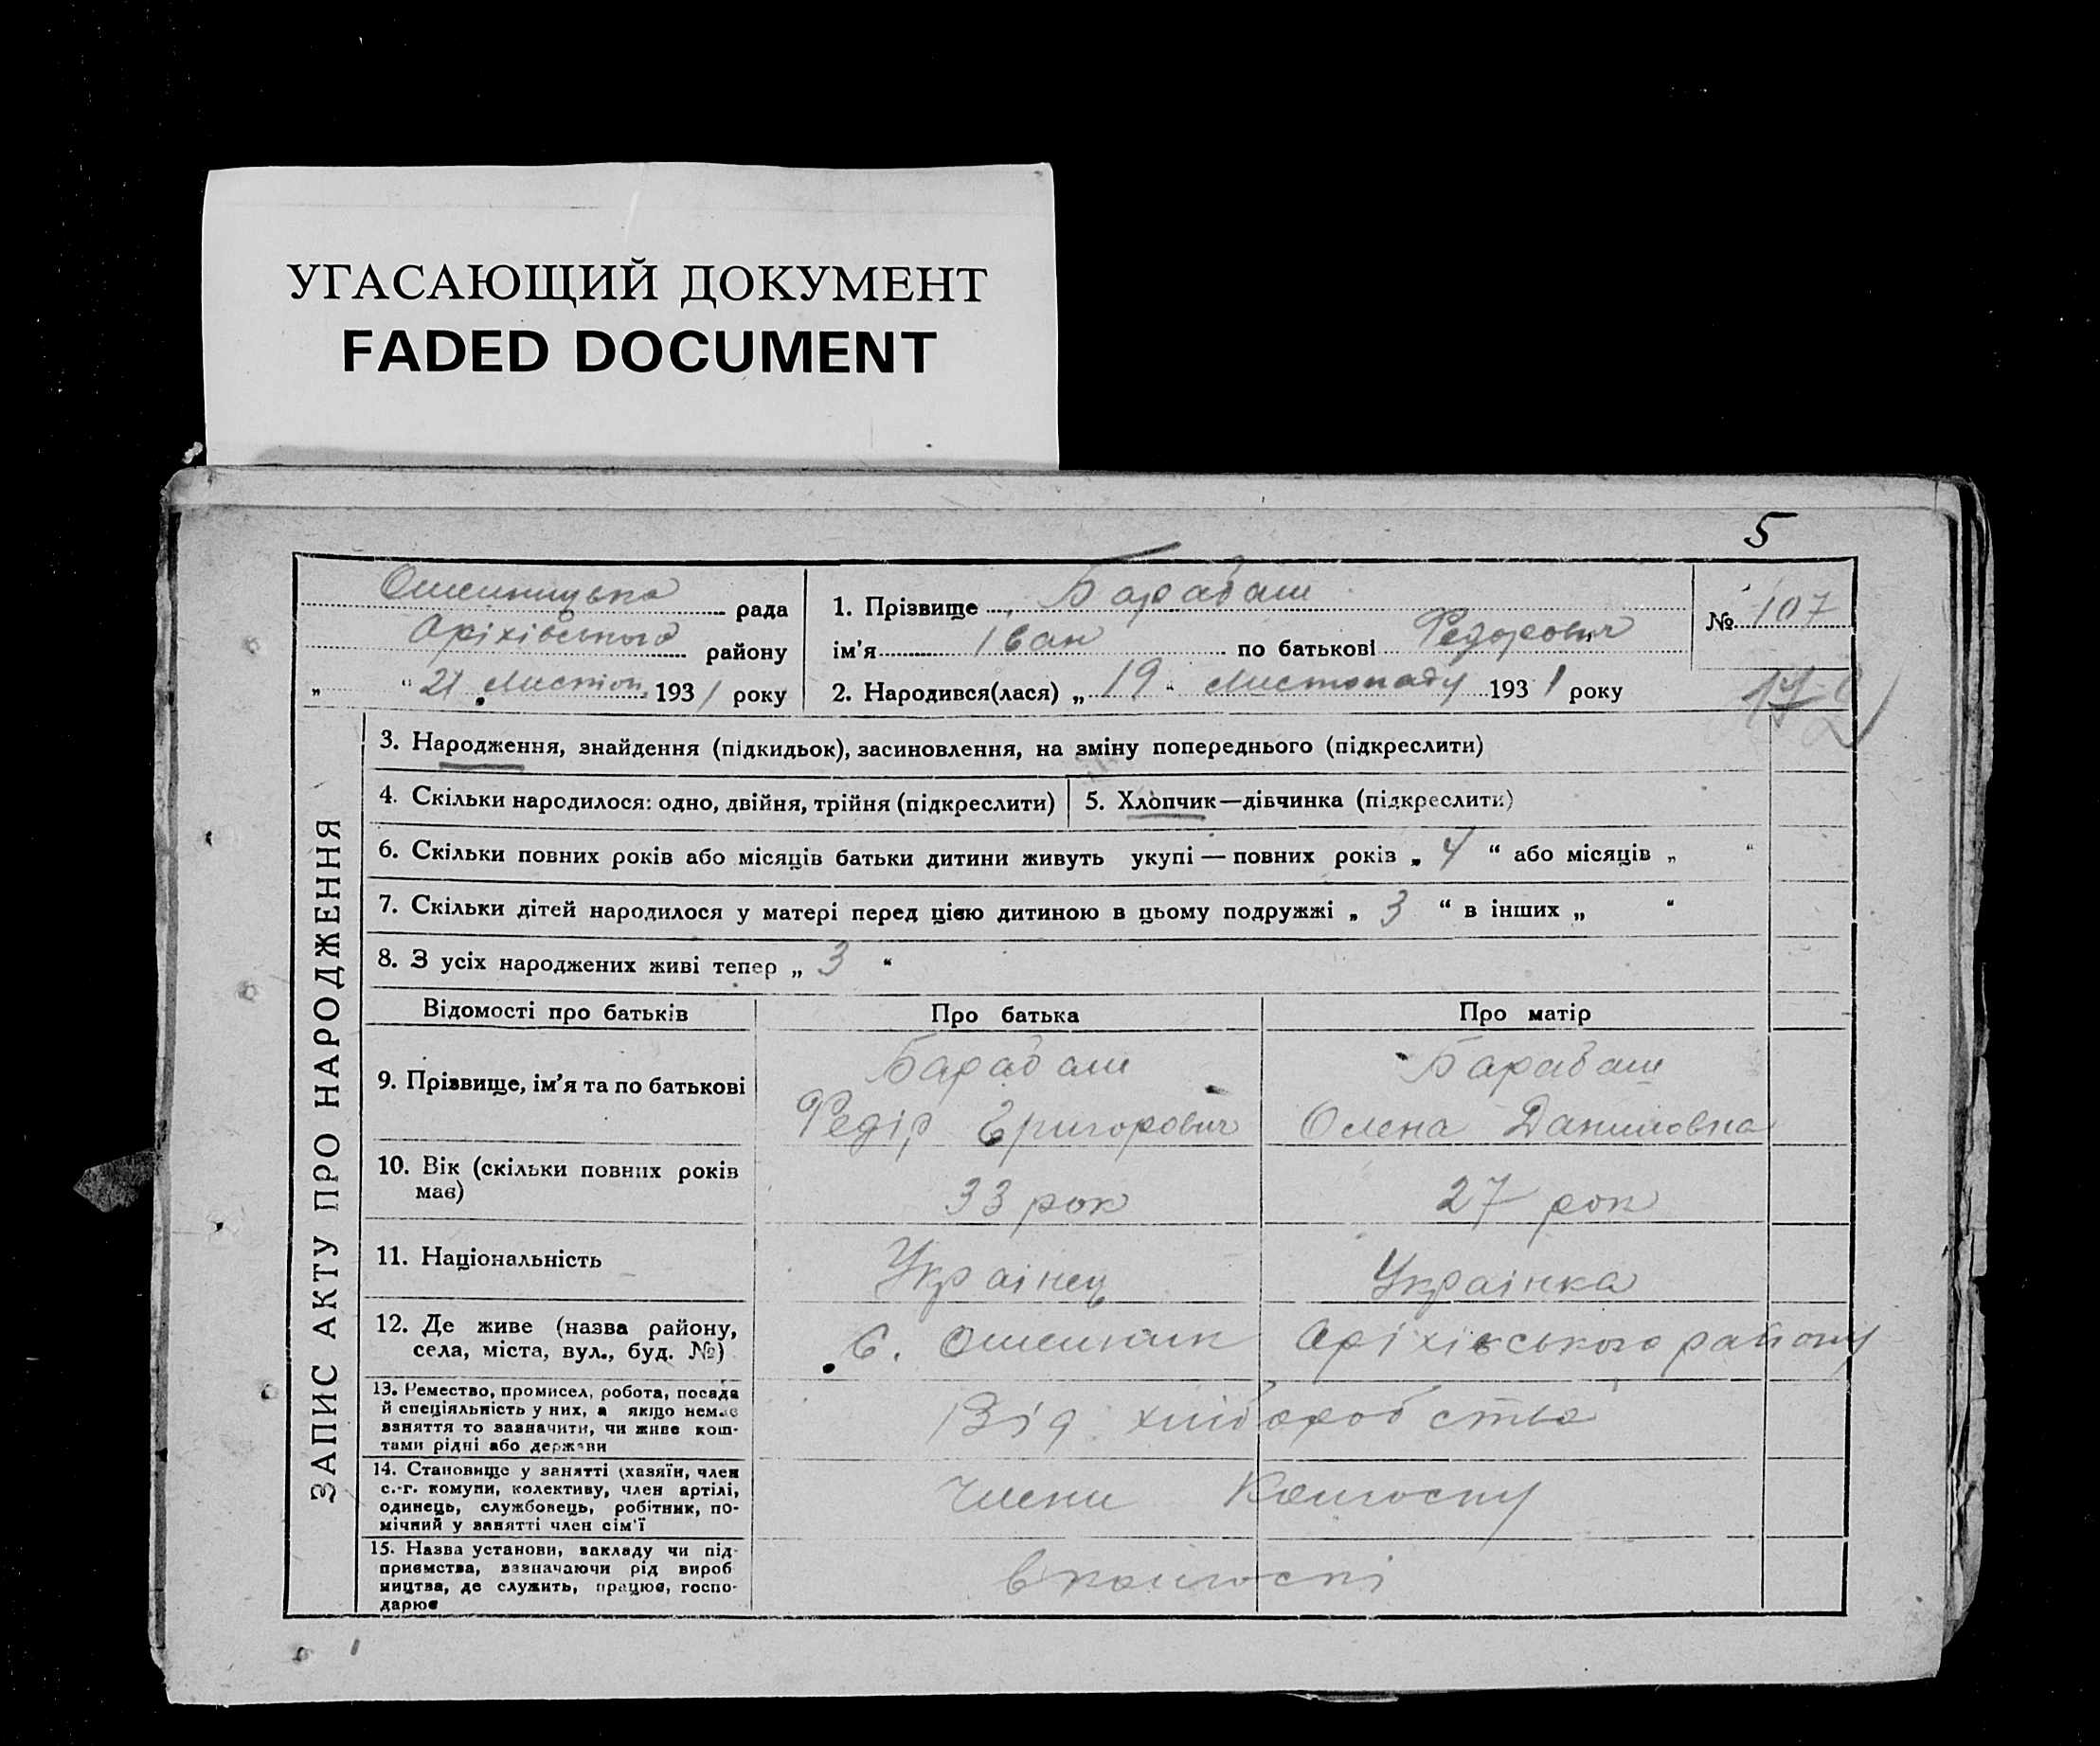 УГАСАЮЩИЙ ДОКУМЕНТ
FADED DOCUMENT
5
Ошеницька рада
Оріхівського району
„ “ 21 Листоп. 1931 року
1. Прізвище Барабаш
ім’я Іван по батькові Федорович
2. Народився(лася) „ 19 “ Листопаду 1931 року
№ 107
ЗАПИС АКТУ ПРО НАРОДЖЕННЯ
3. Народження, знайдення (підкидьок), засиновлення, на зміну попереднього (підкреслити)
4. Скільки народилося: одно, двійня, трійня (підкреслити) 5. Хлопчик—дівчинка (підкреслити)
6. Скільки повних років або місяців батьки дитини живуть укупі — повних років „ 4 “ або місяців „ “
7. Скільки дітей народилося у матері перед цією дитиною в цьому подружжі „ 3 “ в інших „ “
8. З усіх народжених живі тепер „ 3 “
Відомості про батьків Про батька Про матір
9. Прізвище, ім’я та по батькові
Барабаш Барабаш
Федір Григорович Олена Даниловна
10. Вік (скільки повних років
має)
33 рок 27 рок
11. Національність Українец Українка
12. Де живе (назва району,
села, міста, вул., буд. №)
С. Оріхівського району
13. Ремество, промисел, робота, посада
й спеціяльність у них, а якщо немає
взняття то зазначити, чи живе кош-
тами рідні або держави
Від хліборобства
14. Становище у занятті (хазяїн, член
с.-г. комуни, колективу, член артілі,
одинець, службовець, робітник, по-
мічний у занятті член сім’ї
Члени Колгоспу
15. Назва установи, закладу чи під-
приємства, зазначаючи рід вироб
ництва, де служить, працює, госпо-
дарює
в колгоспі